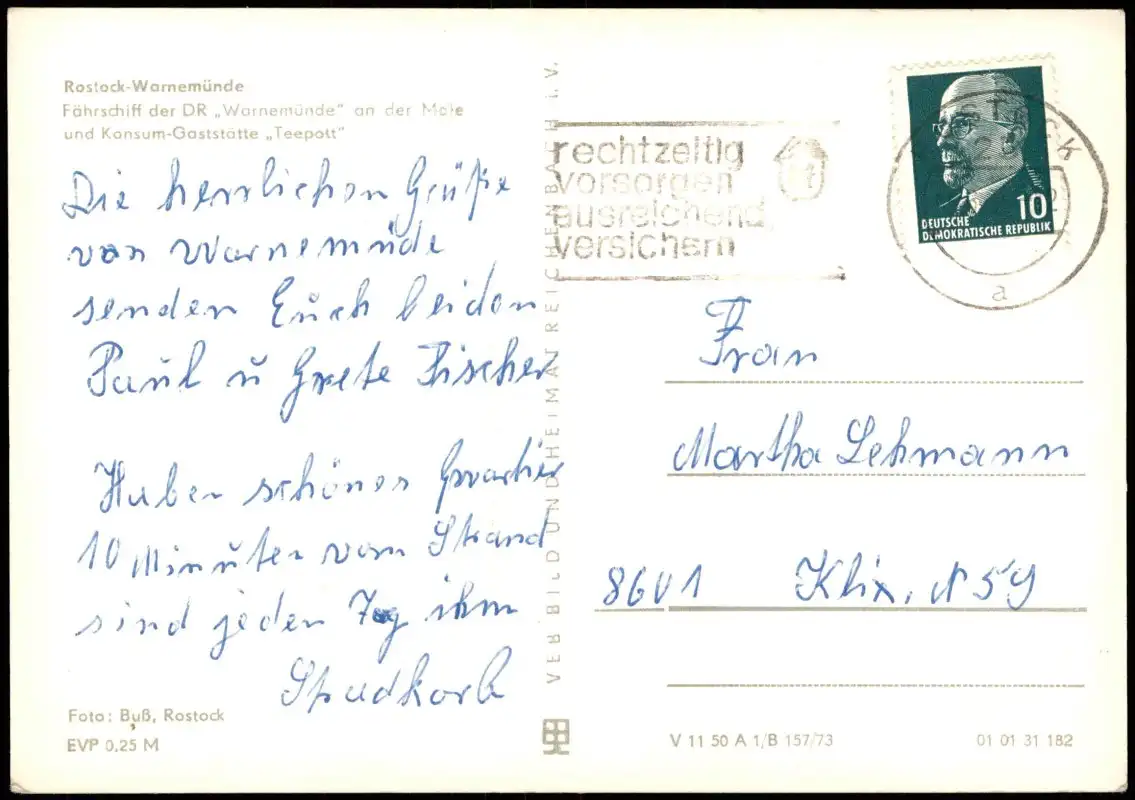 Rostock-Warnemünde
Fährschiff der DR „Warnemünde" an der Mole
und Konsum-Gaststätte „Teepott"
Die herrlichen Grüße
von Warnemünde
senden Euch beiden
Paul u Grete Fischer
Haben schönes Quartier
10 Minuten vom Strand
sind jeden Tag ihm
Spudkorb
Foto: Buß, Rostock
EVP 0,25 M
VEB BILD UND HEIMAT REICHENBACH I. V.
rechtzeitig
vorsorgen
ausreichend
versichern
10
DEUTSCHE
DEMOKRATISCHE REPUBLIK
a
Frau
Martha Lehmann
8601 Klix, N 59
V 11 50 A 1/B 157/73
01 01 31 182